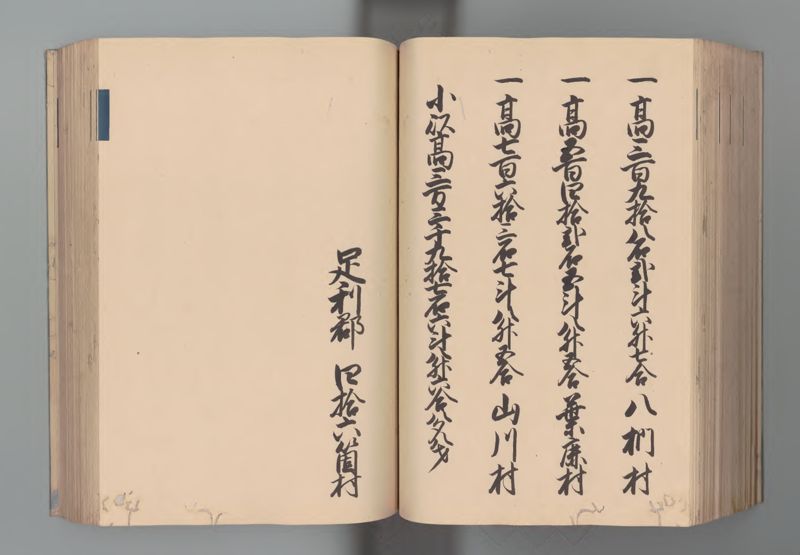 一高三百九拾八石弐斗六升七合 八椚村
一高五百四拾弐石五斗八升五合 葉鹿村
一高七百六拾三石七斗八升五合 山川村
小以高三万三千九拾七石六斗八升六合八夕八才
足利郡 四拾六箇村